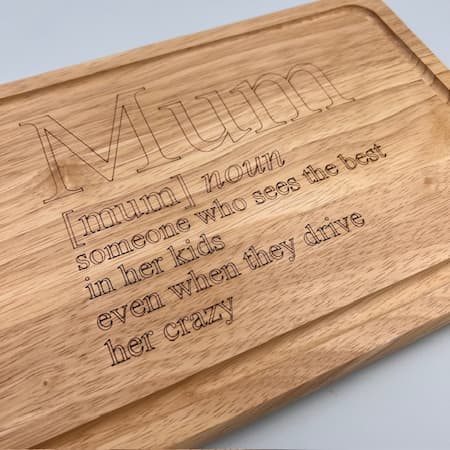 Mum
[mum] noun
someone who sees the best
in her kids
even when they drive
her crazy